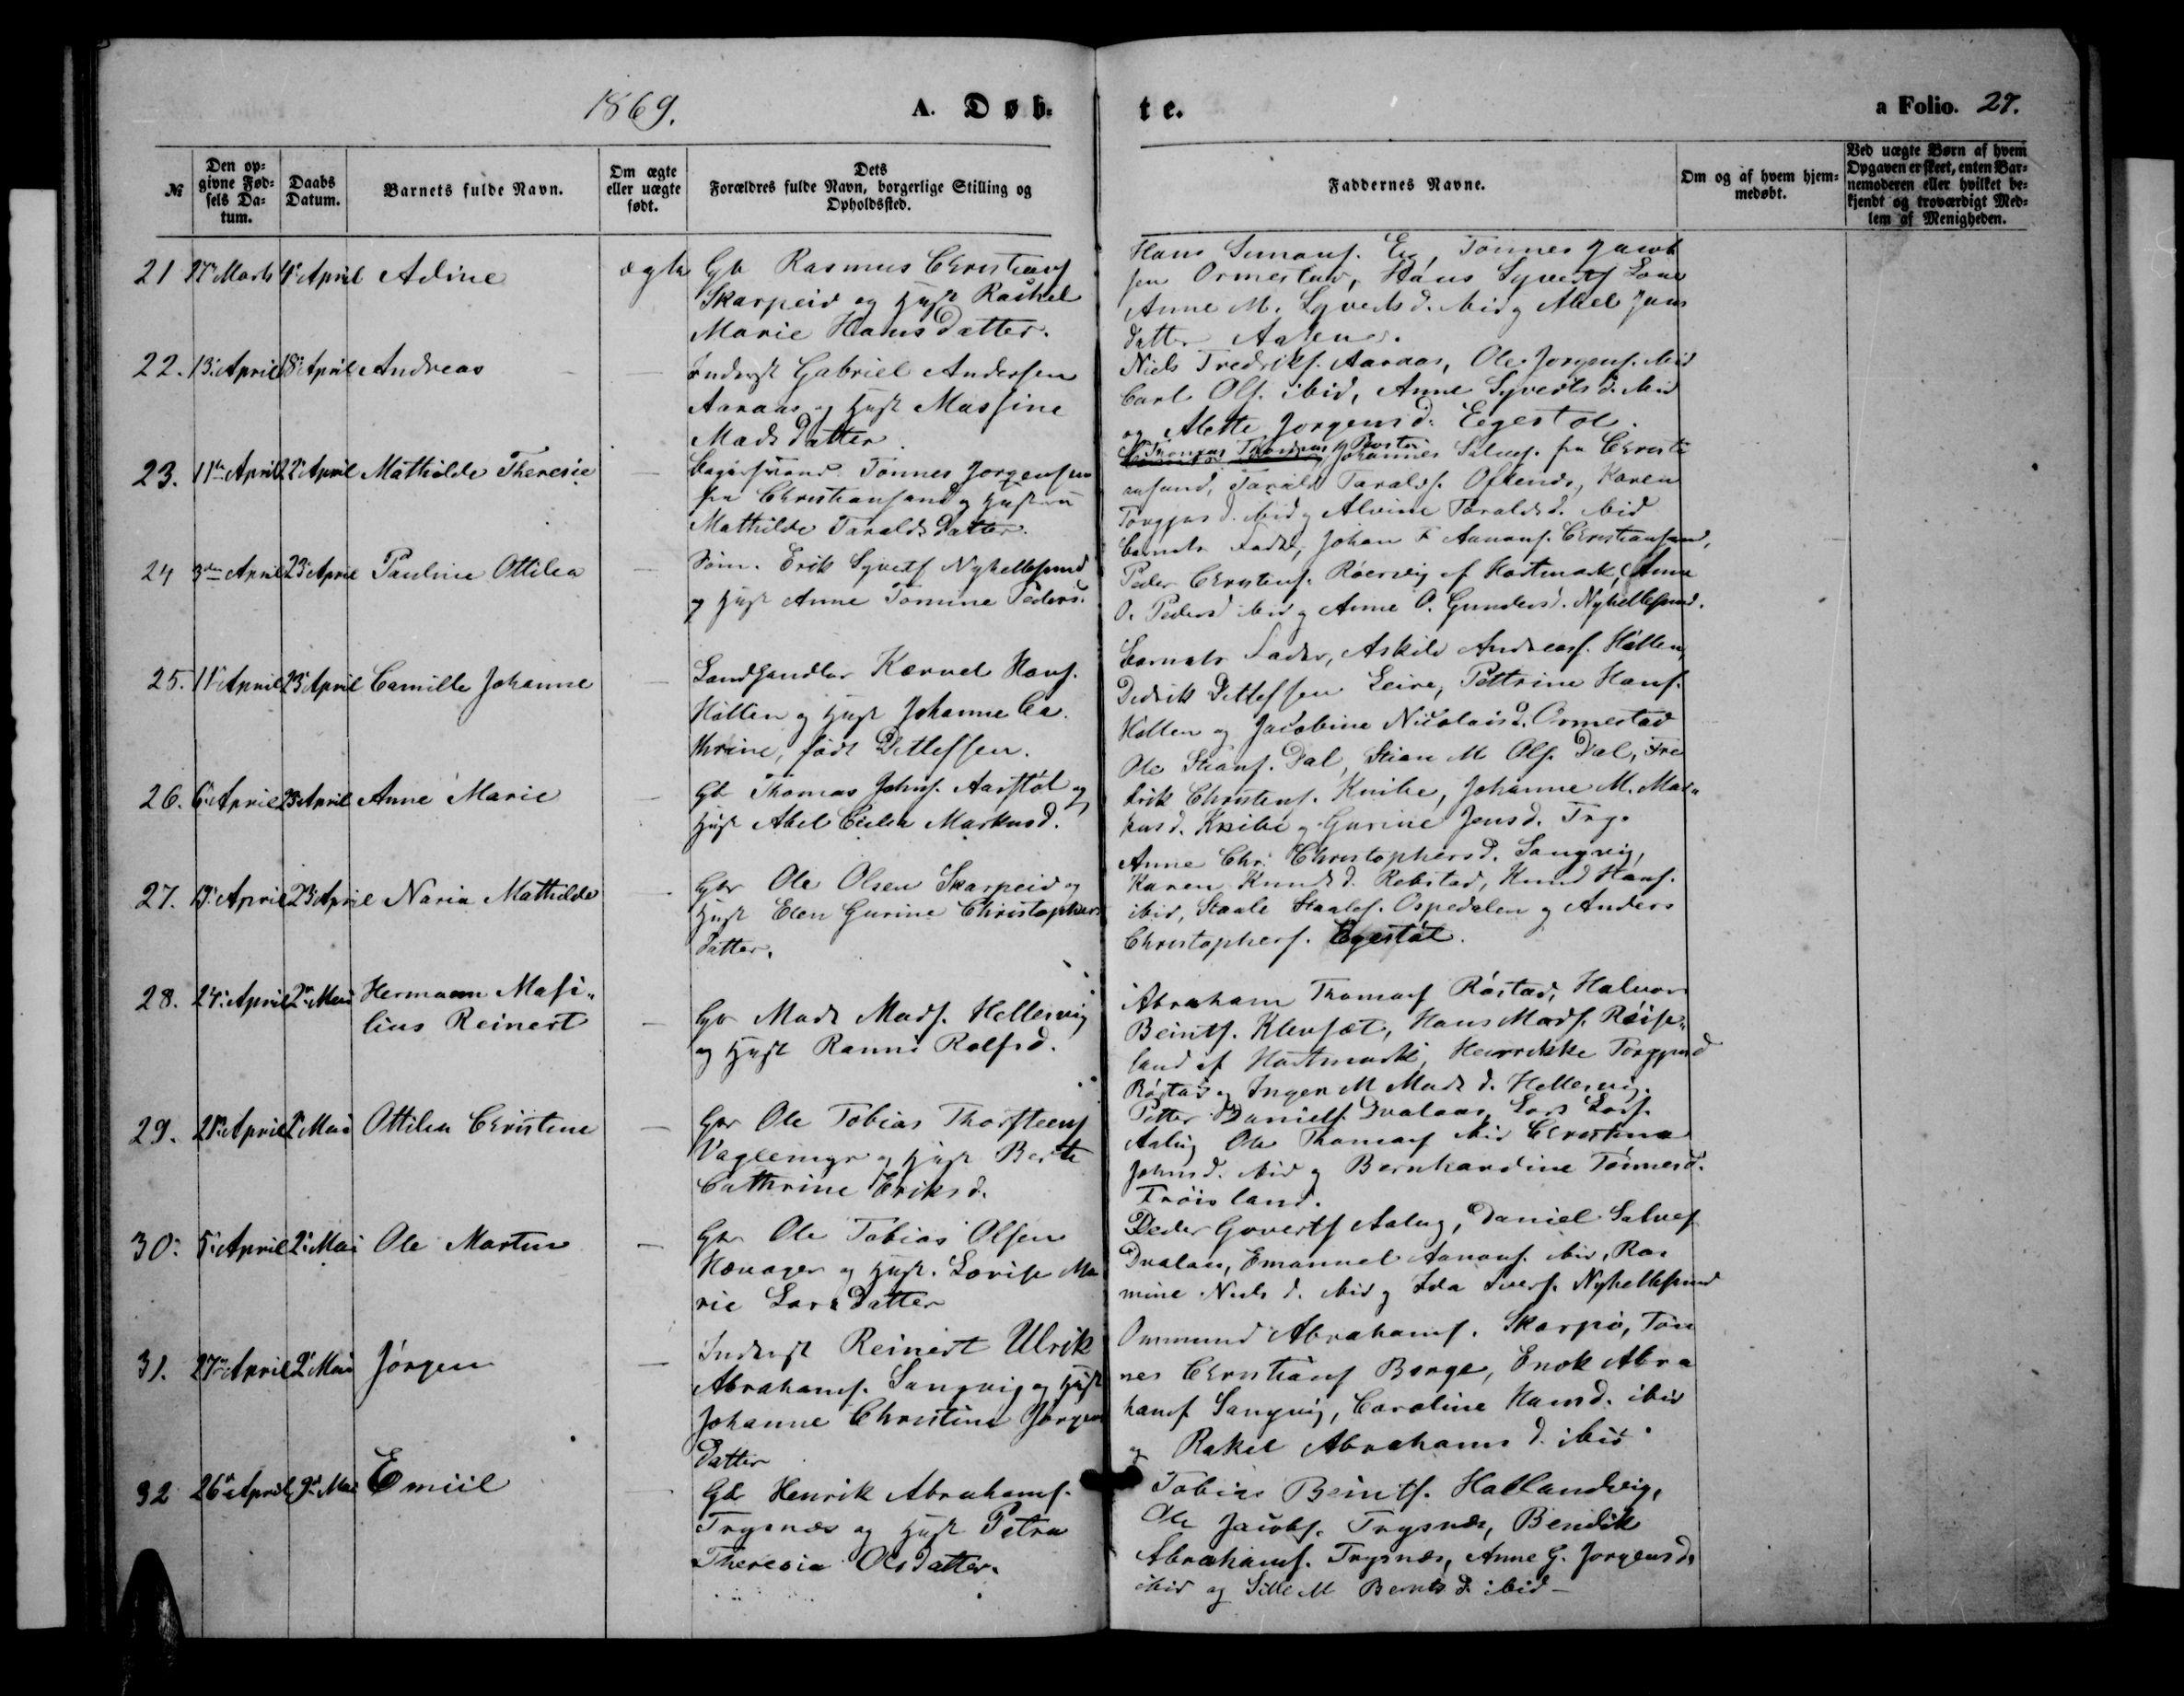 1869.
A. Døb-
te.
a Folio. 27.
№
Den op-
givne Fød-
sels Da-
tum.
Daabs
Datum.
Barnets fulde Navn.
Om ægte
eller uægte
født.
Dets
Forældres fulde Navn, borgerlige Stilling og
Opholdssted.
Faddernes Navne.
Om og af hvem hjem-
medøbt.
Ved uægte Børn af hvem
Opgaven er skeet, enten Bar-
nemoderen eller hvilket be-
kjendt og troværdigt Med-
lem af Menigheden.
21 Marts 4 April Adine ægte Gb Rasmus
Skarpeid og Hust Rachel
Marie Hansdatter.
Hans Eeg, Tønnes Jacob
sen Ormestad, Hans Syverts
Anne M. Syvertsd. ibid og Abel Jans
datter
22. 13 April 18 April Andreas
Inderst Gabriel Andersen
Aaraas og Hust Massine
Madsdatter
Niels Fredriks. Aaraas, Ole Jørgens. ibid
Carl Ols. ibid, Anne Syvertsd. ibid
og Mette Jørgensd. Eegestøl.
23. 11te April April Mathilde Theresie
Tønnes Jørgensen
fra Christiansand og Hustru
Mathilde Taraldsdatter.
Johannes fra Christi
ansand, Tarald Taralds. Karen
ibid og Alvine Taraldsd. ibid
24 3die April 23 April Pauline Ottilia
Erik Syverts Nyhellesund
og Hust Anne Tomine Peders.
Barnets Fader, Johan F Aanons. Christiansand,
Peder Christens. af Hartmark, Anne
O. Pedersd ibid og Anne O. Gundersd. Nyhellesund.
25. 11 April 23 April Camilla Johanne
Landhandler Hans.
Holten og Hust Johanne Ca
thrine, født Detlefsen.
Barnets Fader, Askild Andreas. Holten,
Didrik Detlefsen Leire, Pettrine Hans.
Holten og Jacobine Nicolaisd. Ormestad
26. 6 April 23 April Anne Marie
Gb Thomas Johns. Aarstøl og
Hust Abel Markusd.
Ole Stians. Dal, Stian M Ols. Dal, Fre
drik Christens. Knibe, Johanne M. Mar
kusd. Knibe og Gurine Jensd. Try.
27. April 23 April Maria Mathilde
Gbr Ole Olsen Skarpeid og
Hust Elen Gurine Christophers
datter.
Anne Chr. Christophersd. Sangvig,
Karen Knudsd. Rebstad, Knud Hans.
ibid, Staale Staales. Ospedalen og Anders
Christophers. Egestøl.
28. 24 April 2 Mai Hermann Masi-
lius Reinert
Gb Mads Mads. Hellesvig
og Hust Ranni Rolfsd.
Abraham Thomas Røstad, Halvor
Beints. Klevset, Hans Mads.
land af Hartmark, Henrikke
Røstad og Inger M Madsd. Hellesvig.
29. April 2 Mai Ottilia Christine
Gbr Ole Tobias Thorsteens
Vaglemyr og Hust Berte
Cathrine Eriksd.
Petter Daniels. Dvalaas, Lars Lars.
Ole Thomas ibid Christina
Johnsd. ibid og Bernhardine Tønnesd.
Frøisland.
30. 5 April 2 Mai Ole Martin
Gbr Ole Tobias Olsen
og Hust. Lovise Ma
rie Larsdatter
Peder Goverts Daniel Salves
Dvalaas, Emanuel Aanons. ibid, Ras
mine Nielsd. ibid og Ida Nyhellesund
31. 27 April 2 Mai Jørgen
Inderst Reinert Ulrik
Abrahams. Sangvig og Hust
Johanne Christine Jørgens
datter
Ommund Abrahams. Skarpø, Tøn
nes Christians Berge, Enok Abra
hams Sangvig, Caroline Hansd. ibid
og Rakel Abrahamsd. ibid
32 26 April 9 Mai Emiil
Gb Henrik Abrahams.
Trysnæs og Hust Petra
Theresia Olsdatter.
Tobias Beints. Hallandvig,
Ole Jacobs. Trysnæs, Bendik
Abrahams. Trysnæs, Anne G. Jørgensd.
ibid og Sille M Berntsd. ibid